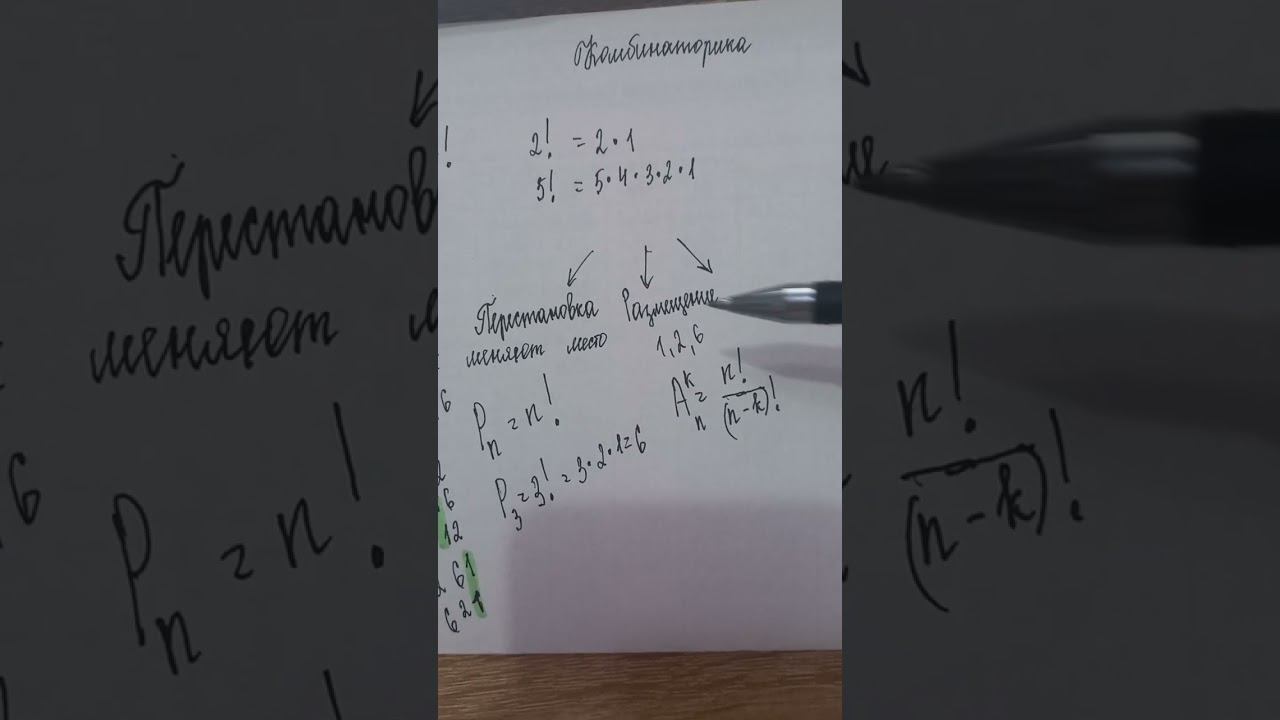 Комбинаторика
!
2! = 2·1
5! = 5·4·3·2·1
Перестановка Размещение
меняют место 1, 2, 6
6
Pₙ = n! Aₙᵏ = n!/(n-k)!
P₃ = 3! = 3·2·1 = 6
2
6
12
61
621